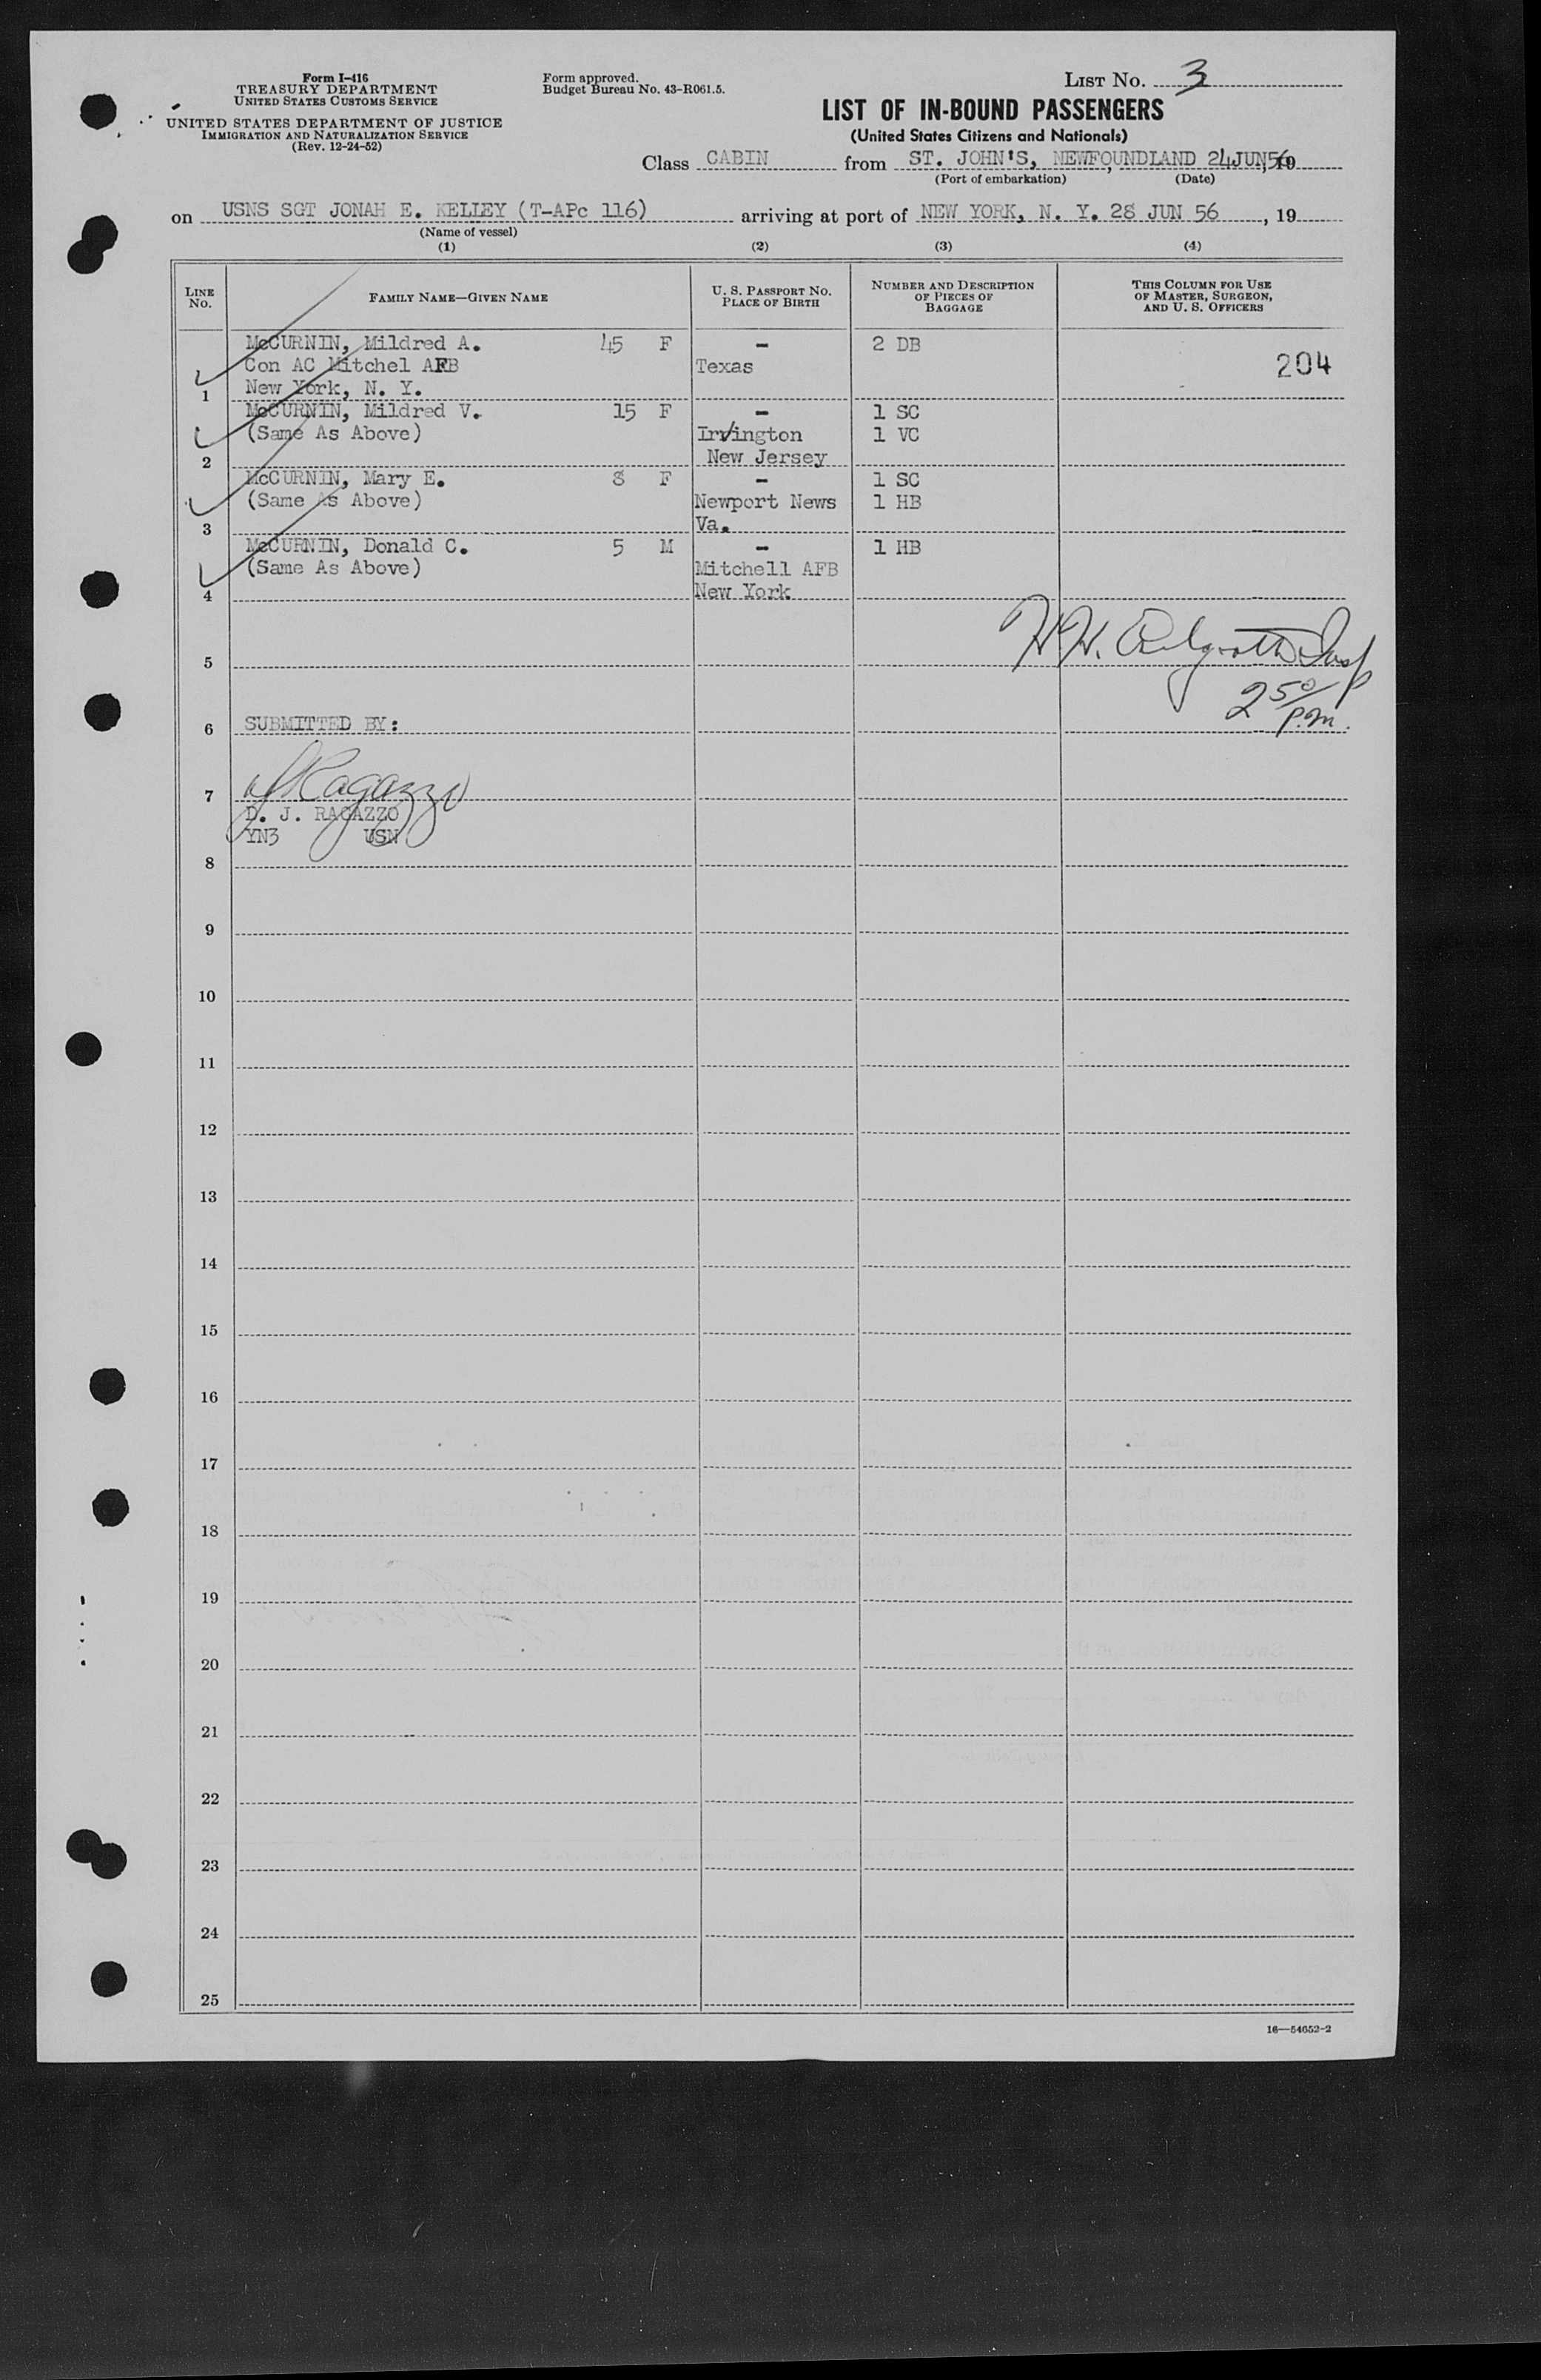 Form I-416
TREASURY DEPARTMENT
UNITED STATES CUSTOMS SERVICE
UNITED STATES DEPARTMENT OF JUSTICE
IMMIGRATION AND NATURALIZATION SERVICE
(Rev. 12-24-52)
Form approved.
Budget Bureau No. 43-R061.5.
LIST NO. 3
LIST OF IN-BOUND PASSENGERS
(United States Citizens and Nationals)
Class CABIN from ST. JOHN'S, NEWFOUNDLAND 24JUN56, 19
(Port of embarkation) (Date)
on USNS SGT JONAH E. KELLEY (T-APc 116) arriving at port of NEW YORK, N. Y. 28 JUN 56, 19
(Name of vessel)
(1) (2) (3) (4)
LINE NO. FAMILY NAME—GIVEN NAME U. S. PASSPORT NO. PLACE OF BIRTH NUMBER AND DESCRIPTION OF PIECES OF BAGGAGE THIS COLUMN FOR USE OF MASTER, SURGEON, AND U. S. OFFICERS
McCURNIN, Mildred A. 45 F - 2 DB
Con AC Mitchel AFB Texas 204
1 New York, N. Y.
McCURNIN, Mildred V. 15 F - 1 SC
(Same As Above) Irvington 1 VC
2 New Jersey
McCURNIN, Mary E. 8 F - 1 SC
(Same As Above) Newport News 1 HB
3 Va.
McCURNIN, Donald C. 5 M - 1 HB
(Same As Above) Mitchell AFB
4 New York
5 Insp
2 50/ P.M.
6 SUBMITTED BY:
7 Ragazzo
D. J. RAGAZZO
YN3 USN
8
9
10
11
12
13
14
15
16
17
18
19
20
21
22
23
24
25
16—54652-2